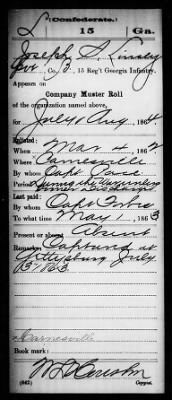 L (Confederate.)
15 Ga.
Joseph S. Linsey
Pvt, Co. B, 15 Reg't Georgia Infantry.
Appears on
Company Muster Roll
of the organization named above,
for July & Aug, 1864.
Enlisted:
When Mar 4, 1862
Where Carnesville
By whom Capt
Period During the War
Last paid:
By whom Capt
To what time May 1, 1863
Present or absent Absent
Remarks: Captured at
Gettysburg July
3, 1863
Carnesville
Book mark:
(642) Copyist.